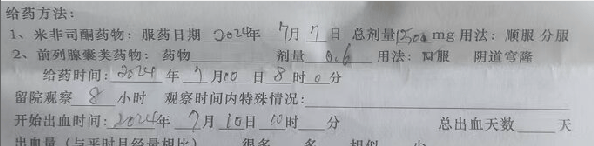 给药方法：
1、米非司酮药物：服药日期 2024年 7月 7 日 总剂量150 mg 用法：顺服 分服
2、前列腺素类药物：药物 剂量 0.6 用法：口服 阴道穹隆
给药时间：2024 年 7 月10 日 8 时 0 分
留院观察 8 小时 观察时间内特殊情况：
开始出血时间：2024年 7月 10日 10时 分 总出血天数 天
出血量（与平时月经量相比） 很多 多 相似